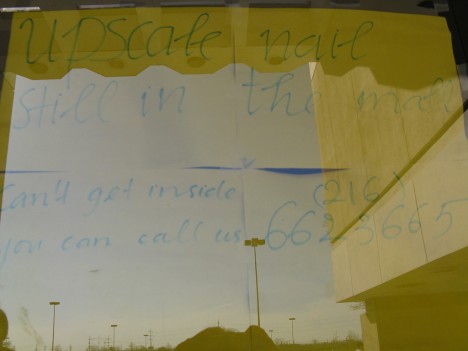 upscale nail
still in the mall
can't get inside (216)
you can call us 662 3665